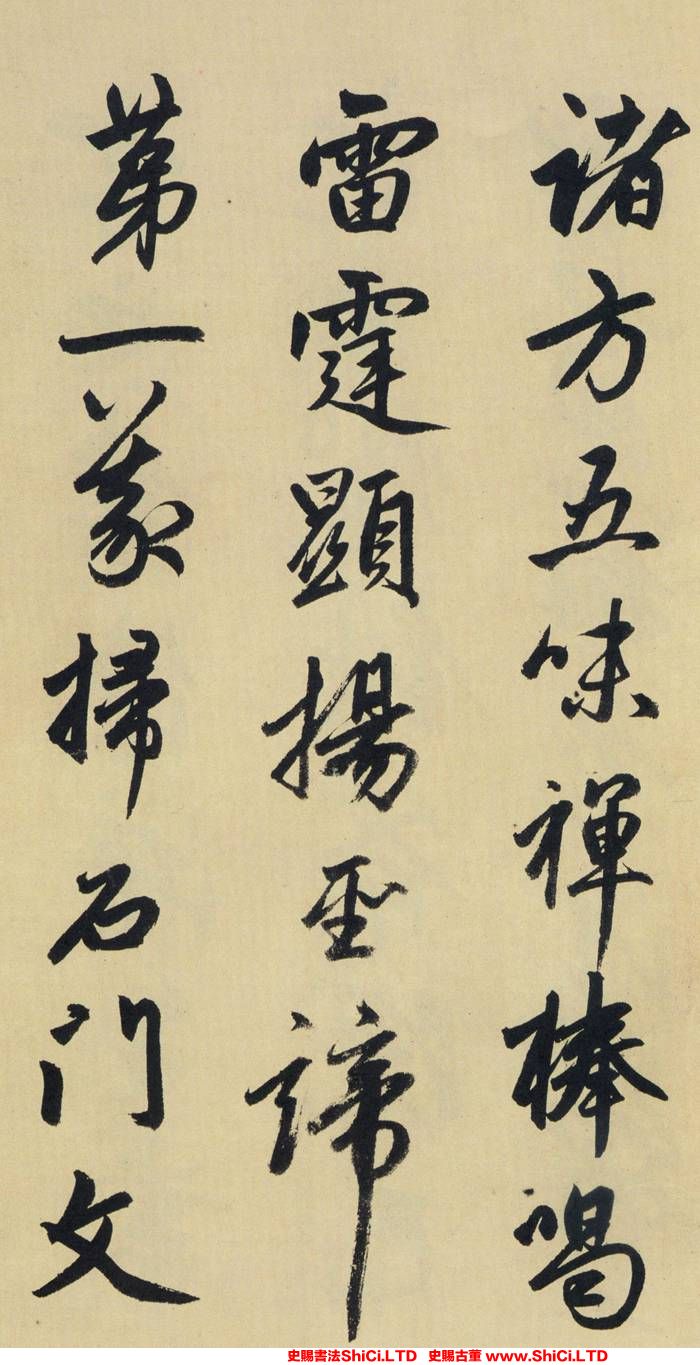 诸方五味禅棒喝
雷霆顯揚聖諦
第一義掃石门文
史賜書法ShiCi.LTD 史賜古董 www.ShiCi.LTD